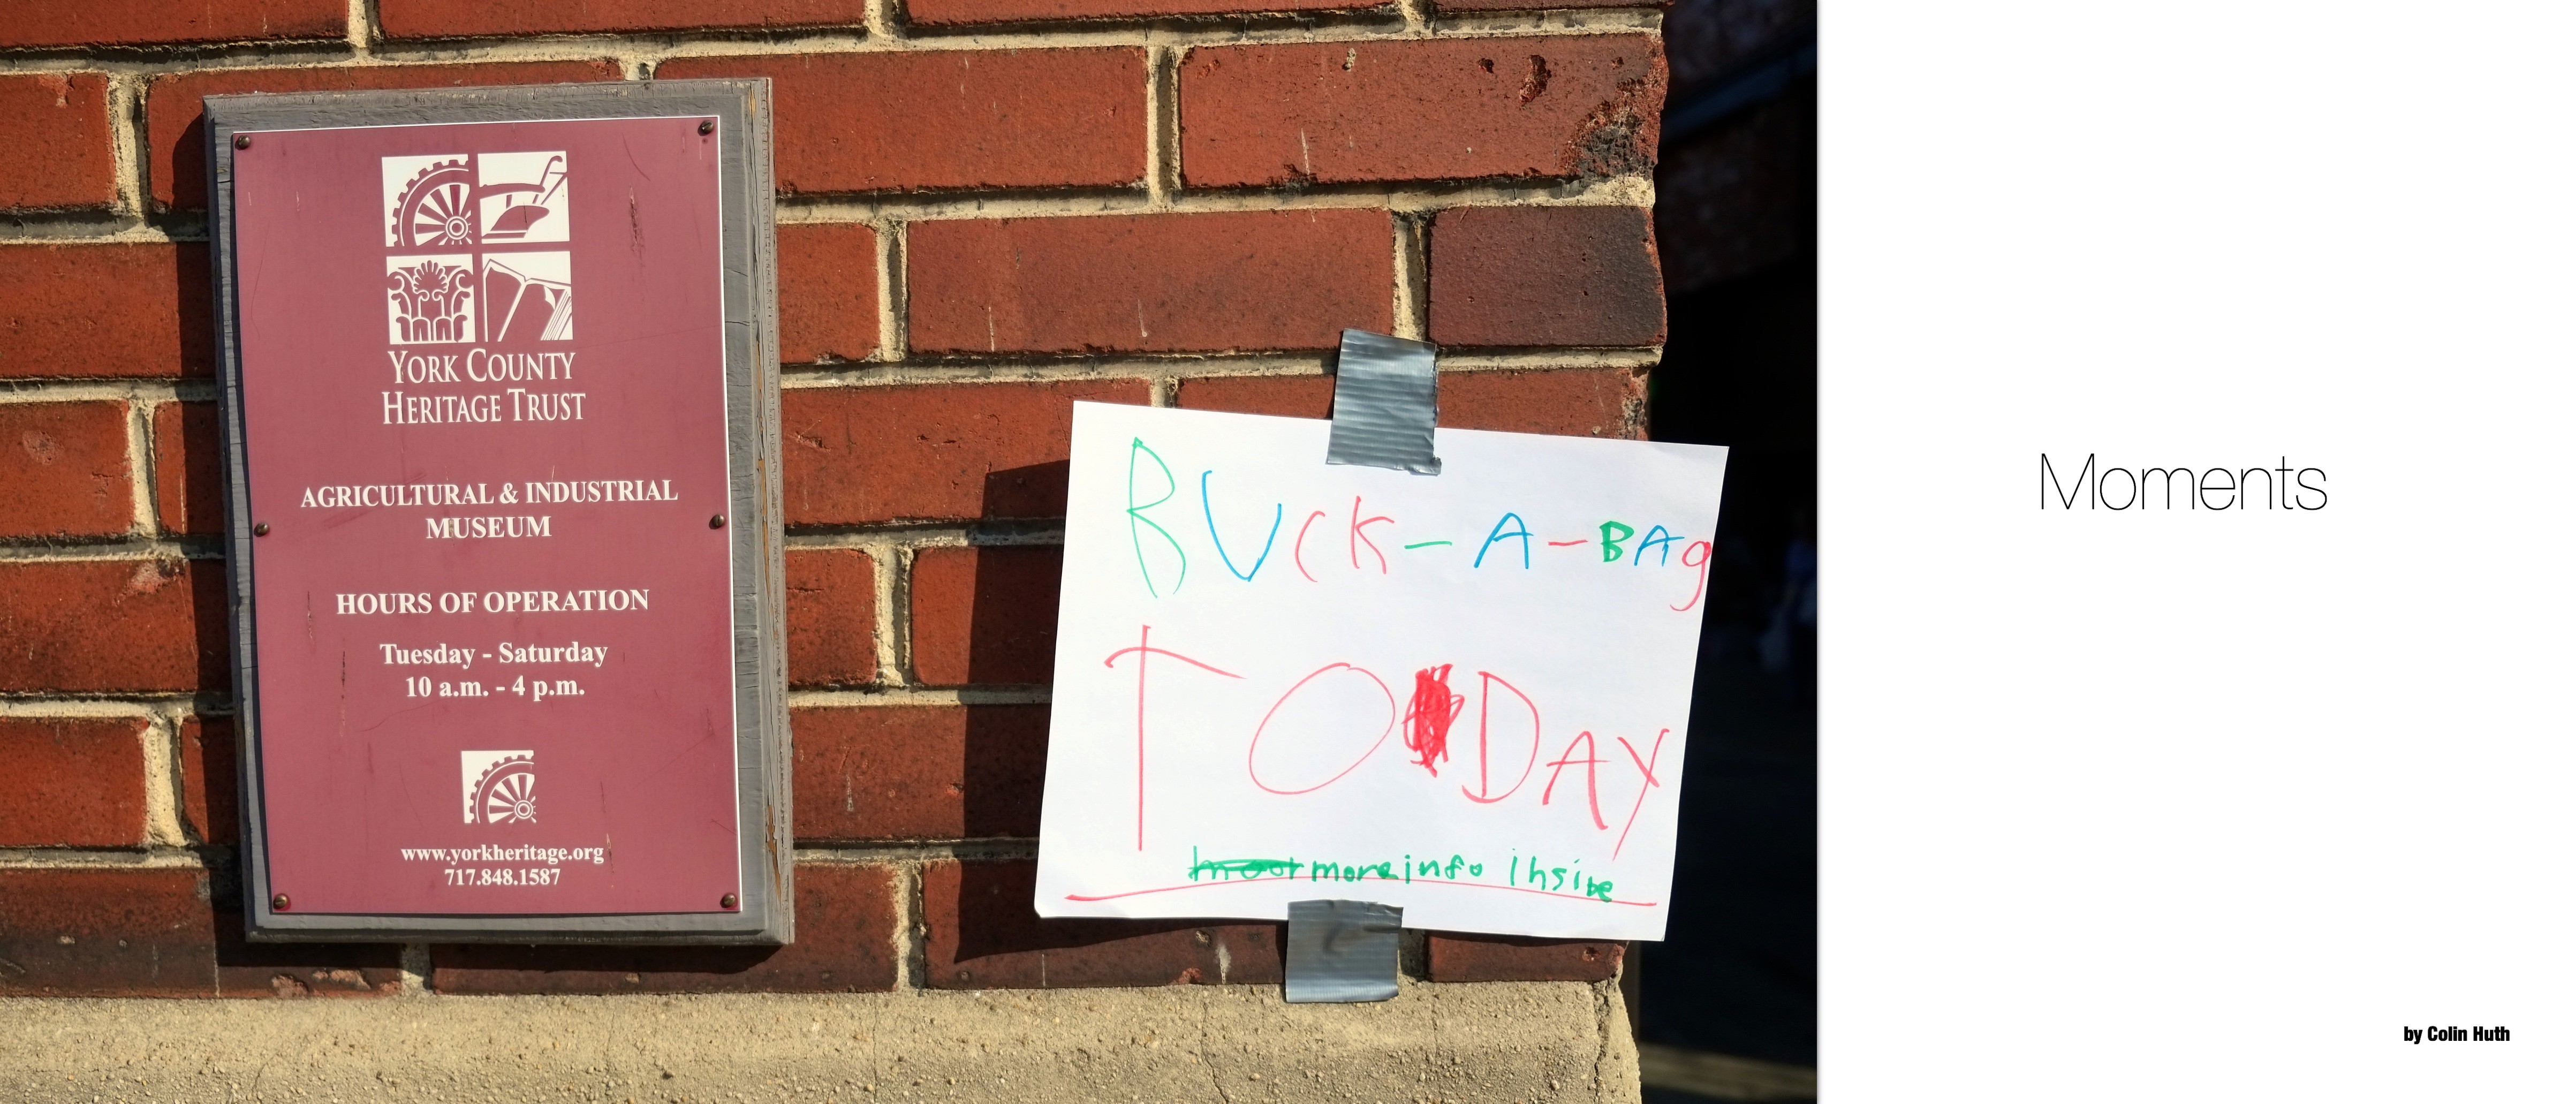 YORK COUNTY
HERITAGE TRUST
AGRICULTURAL & INDUSTRIAL
MUSEUM
HOURS OF OPERATION
Tuesday - Saturday
10 a.m. - 4 p.m.
www.yorkheritage.org
717.848.1587
BUCK-A-BAg
TODAY
more info inside
Moments
by Colin Huth